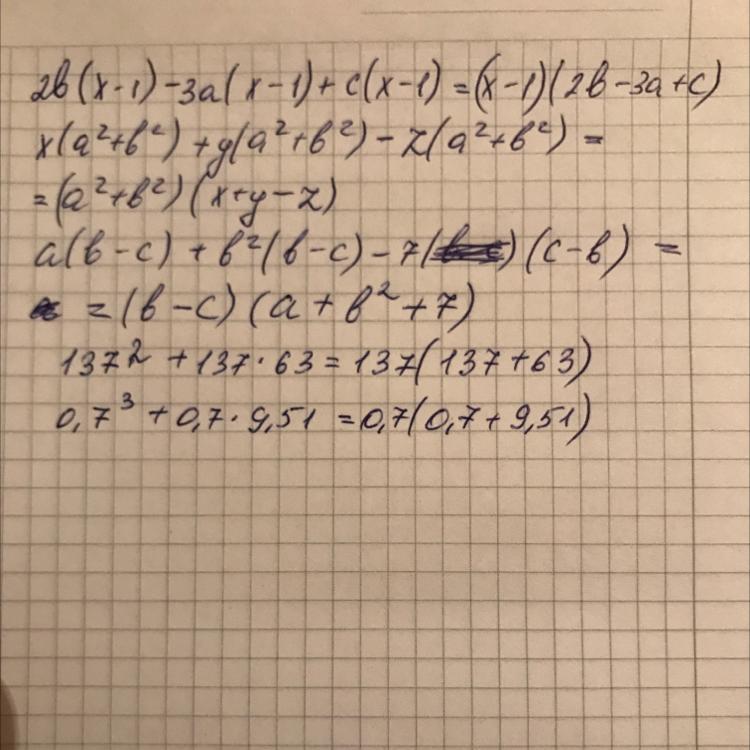 2в(x-1)-3a(x-1)+c(x-1)=(x-1)(2в-3a+c)
x(a²+в²)+y(a²+в²)-z(a²+в²)=
=(a²+в²)(x+y-z)
a(в-c)+в²(в-c)-7()(c-в)=
=(в-c)(a+в²+7)
137²+137·63=137(137+63)
0,7³+0,7·9,51=0,7(0,7+9,51)